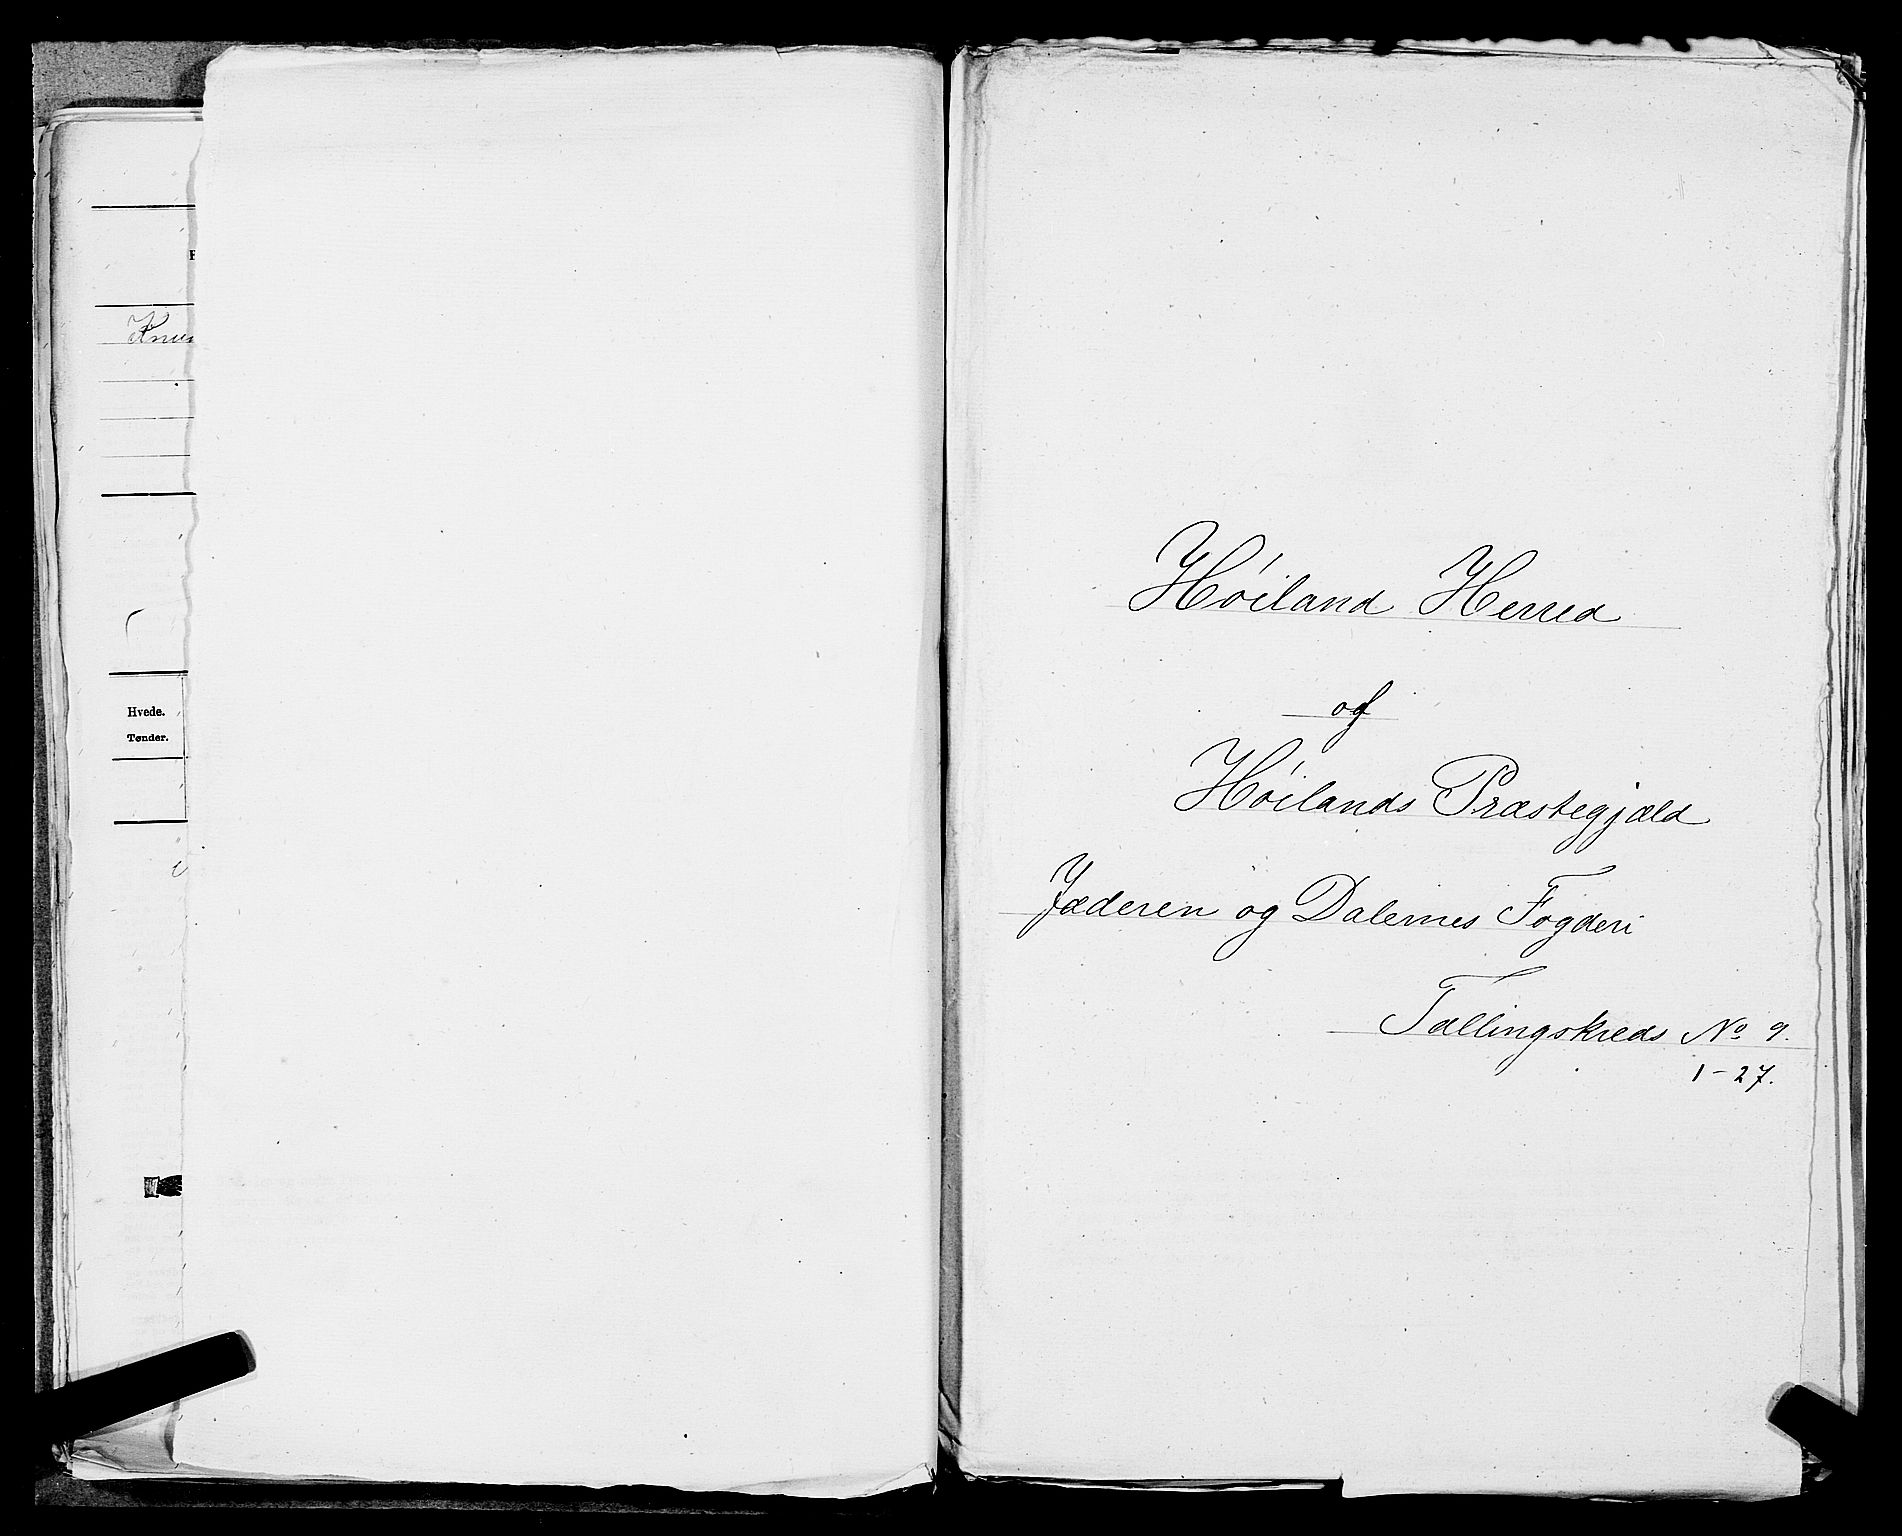 Knu
Hvede.
Tønder.
Høiland Herred
af
Høilands Præstegjæld
Jæderen og Dalernes Fogderi
Tællingskreds No 9.
1-27.